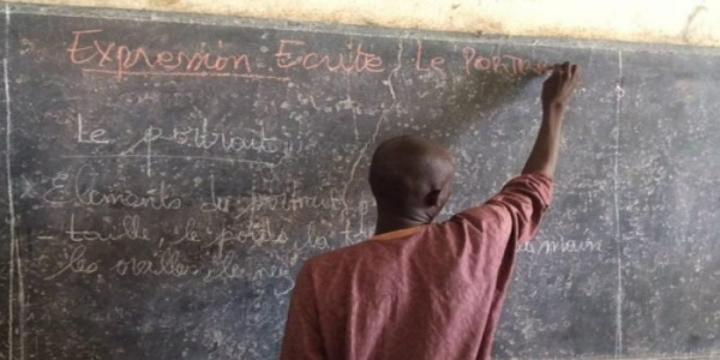 Expression Ecrite Le Portra
Le portrait
Elements du portrait
- taille, le poids, la main
les oreilles, le nez